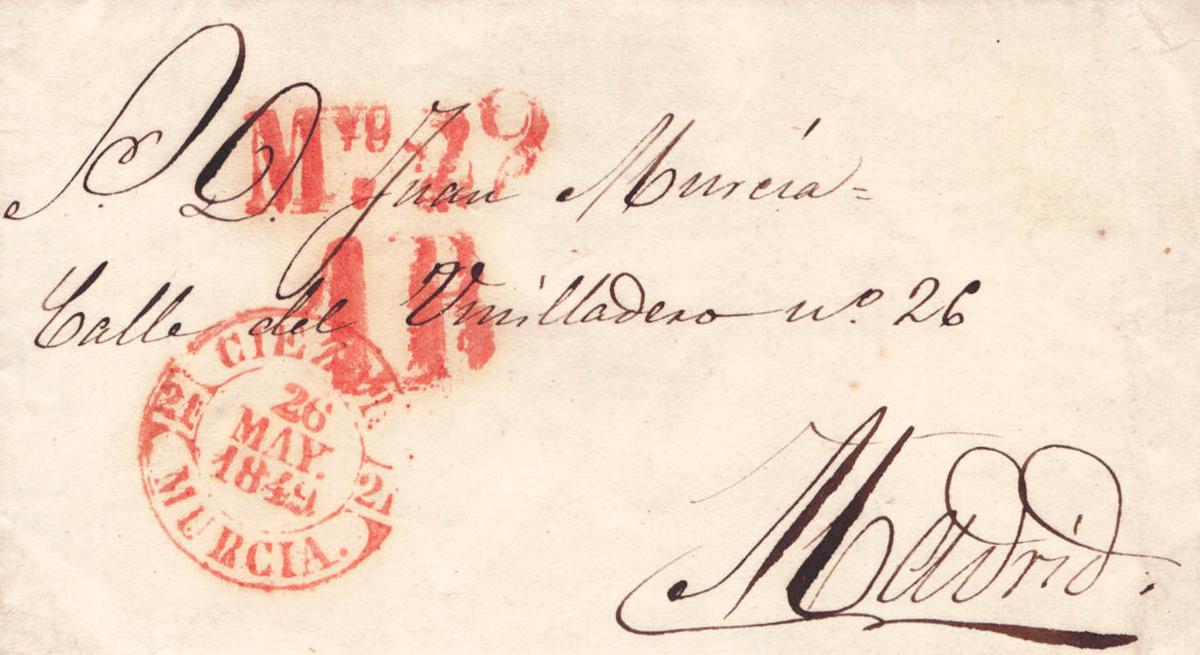 Sr. D. Juan Murcia=
Calle del Vmilladero nº. 26
Madrid.
Myo. 29
AR
CIEZA
26
MAY.
1849
21
21
MURCIA.